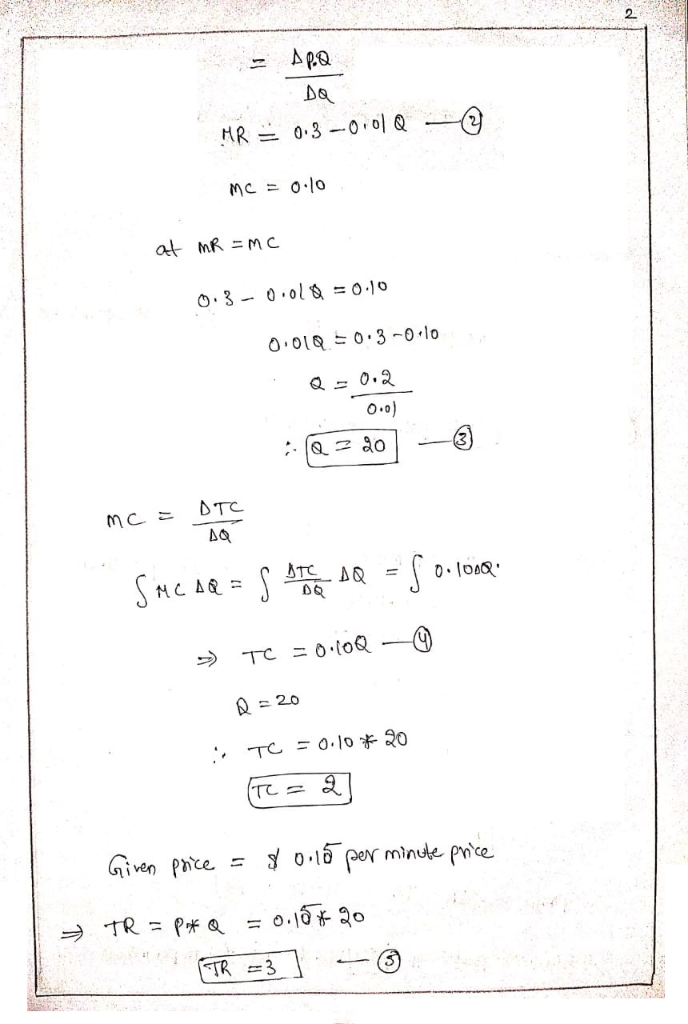 2
= Δp.Q
ΔQ
MR = 0.3 - 0.01 Q —②
MC = 0.10
at MR = MC
0.3 - 0.01Q = 0.10
0.01Q = 0.3 - 0.10
Q = 0.2
0.01
∴ Q = 20 —③
MC = ΔTC
ΔQ
∫ MC ΔQ = ∫ ΔTC/ΔQ ΔQ = ∫ 0.10ΔQ.
⇒ TC = 0.10Q —④
Q = 20
∴ TC = 0.10 * 20
TC = 2
Given price = $ 0.15 per minute price
⇒ TR = P * Q = 0.15 * 20
TR = 3 —⑤